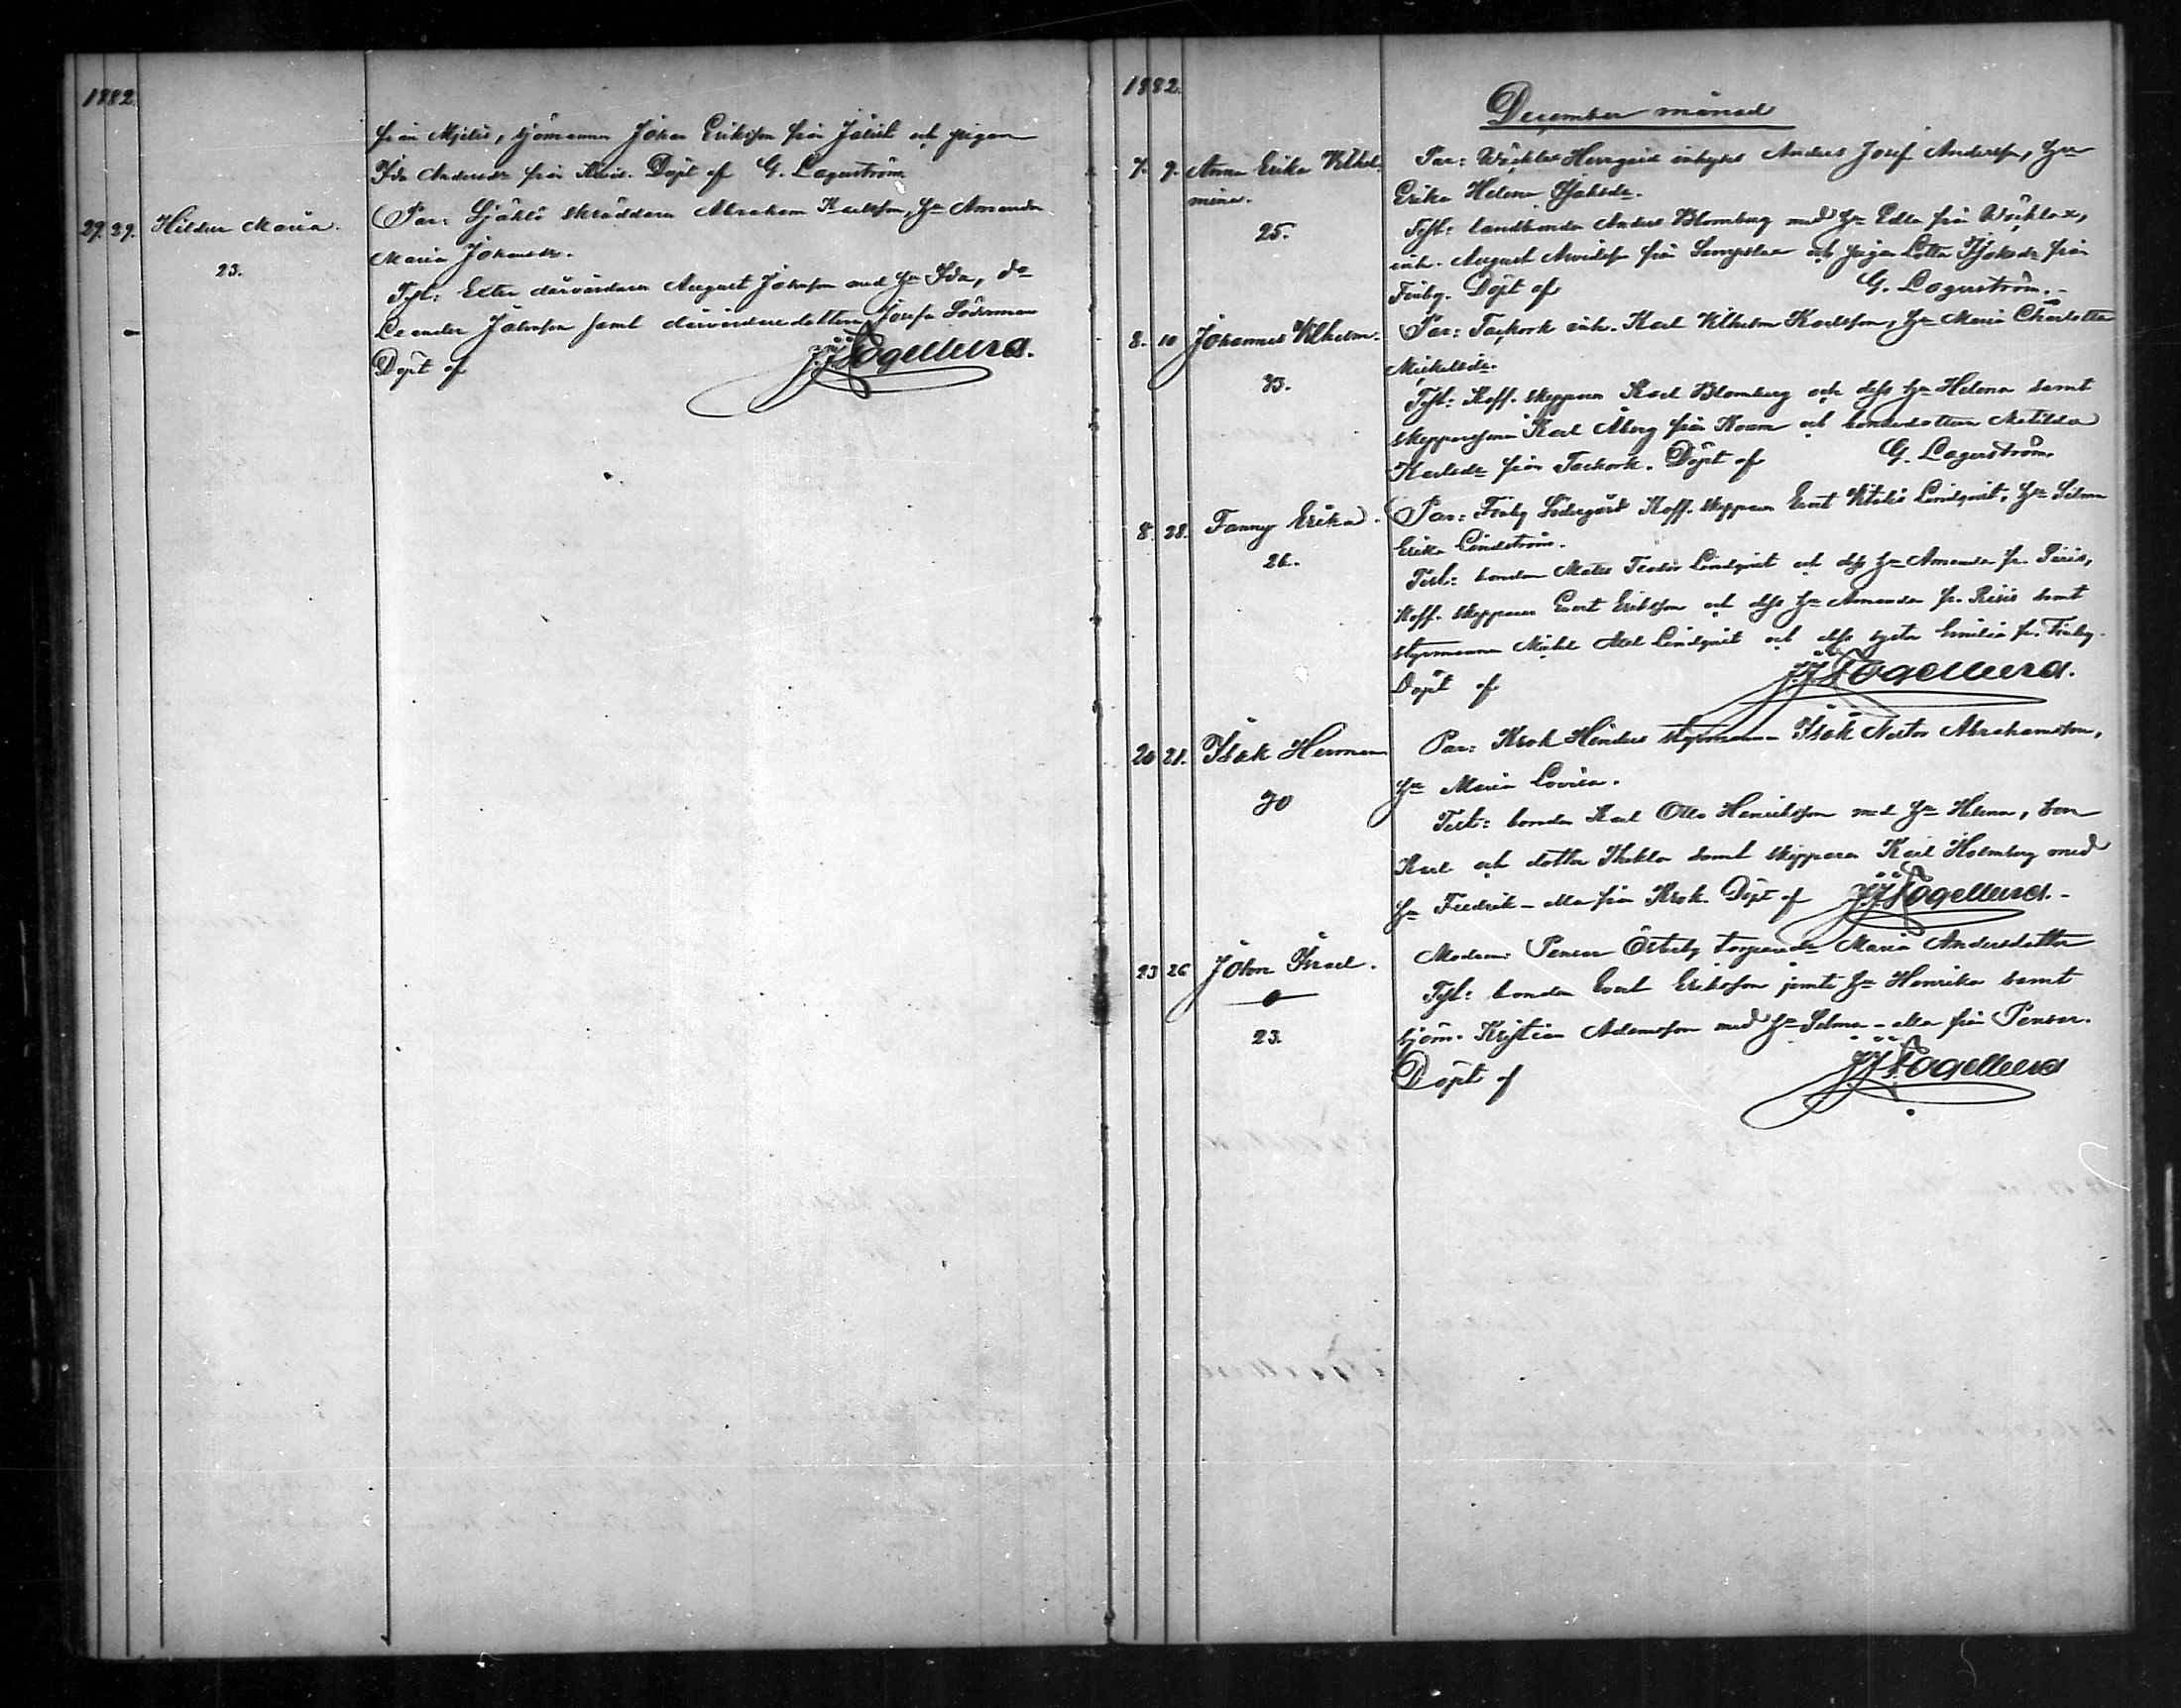 1882
från Mjelis, sjömannen Johan Eriksson från Jälist och pigan
Ida Andersdr från Kivis. Döpt af G. Lagerström
29. 29. Hildur Maria. Par: Själö skräddaren Abraham Karlsson, Hu Amanda
23. Maria Johansdr.
Test: dårvårdaren August Johnsson med Hu Ida, do
Leander Johnsson samt dårvårdaredottern Josefa Söderman
Döpt af J.J. Fogellund.
1882.
December månad
7. 9. Anna Erika Vilhel- Par: Wåcklax Herrgård inhyses Anders Josef Andersson, Hu
mina. Erika Helena Isaksdr.
25. Test: landbonden Anders Blomberg med Hu Edla från Wåcklax,
inh. August Arvidsson från och pigan Lotta Isaksdr från
Finby. Döpt af G. Lagerström.-
8. 10 Johannes Vilhelm. Par: Tackork inh. Karl Vilhelm Karlsson, Hu Maria Charlotta
33. Mickelsdr.
Test: Koff. skepparen Karl Blomberg och dess Hu Helena samt
skepparesonen Karl Åberg från och bondedottern Matilda
Karlsdr från Tackork. Döpt af G. Lagerström.
8. 28. Fanny Erika. Par: Finby Södergård Koff. skepparen Evert Lindqvist, Hu Selma
26. Erika Lindström.
Test: bonden Mats Teodor Lindqvist och dess Hu Amanda fr.
Koff. skepparen Evert Eriksson och dess Hu Amanda fr. samt
styrmannen Mickel Axel Lindqvist och dess syster Emilia fr. Finby.
Döpt af J.J. Fogellund.
20 21. Isak Herman Par: Krok Hindus styrmannen Isak Nestor Abrahamsson,
30 Hu Maria Lovisa.
Test: bonden Karl Otto Henriksson med Hu Helena, son
Karl och dotter Thekla samt skepparen Karl Holmberg med
Hu Fredrik - alla från Krok. Döpt af J.J. Fogellund.-
23 26 John Israel. Modren: Pensar Österby Maria Andersdotter
23. Test: bonden Evert Eriksson jemte Hu Henrika samt
sjöm. Kristian Adamsson med Hu Selma - alla från Pensar.
Döpt af J.J. Fogellund